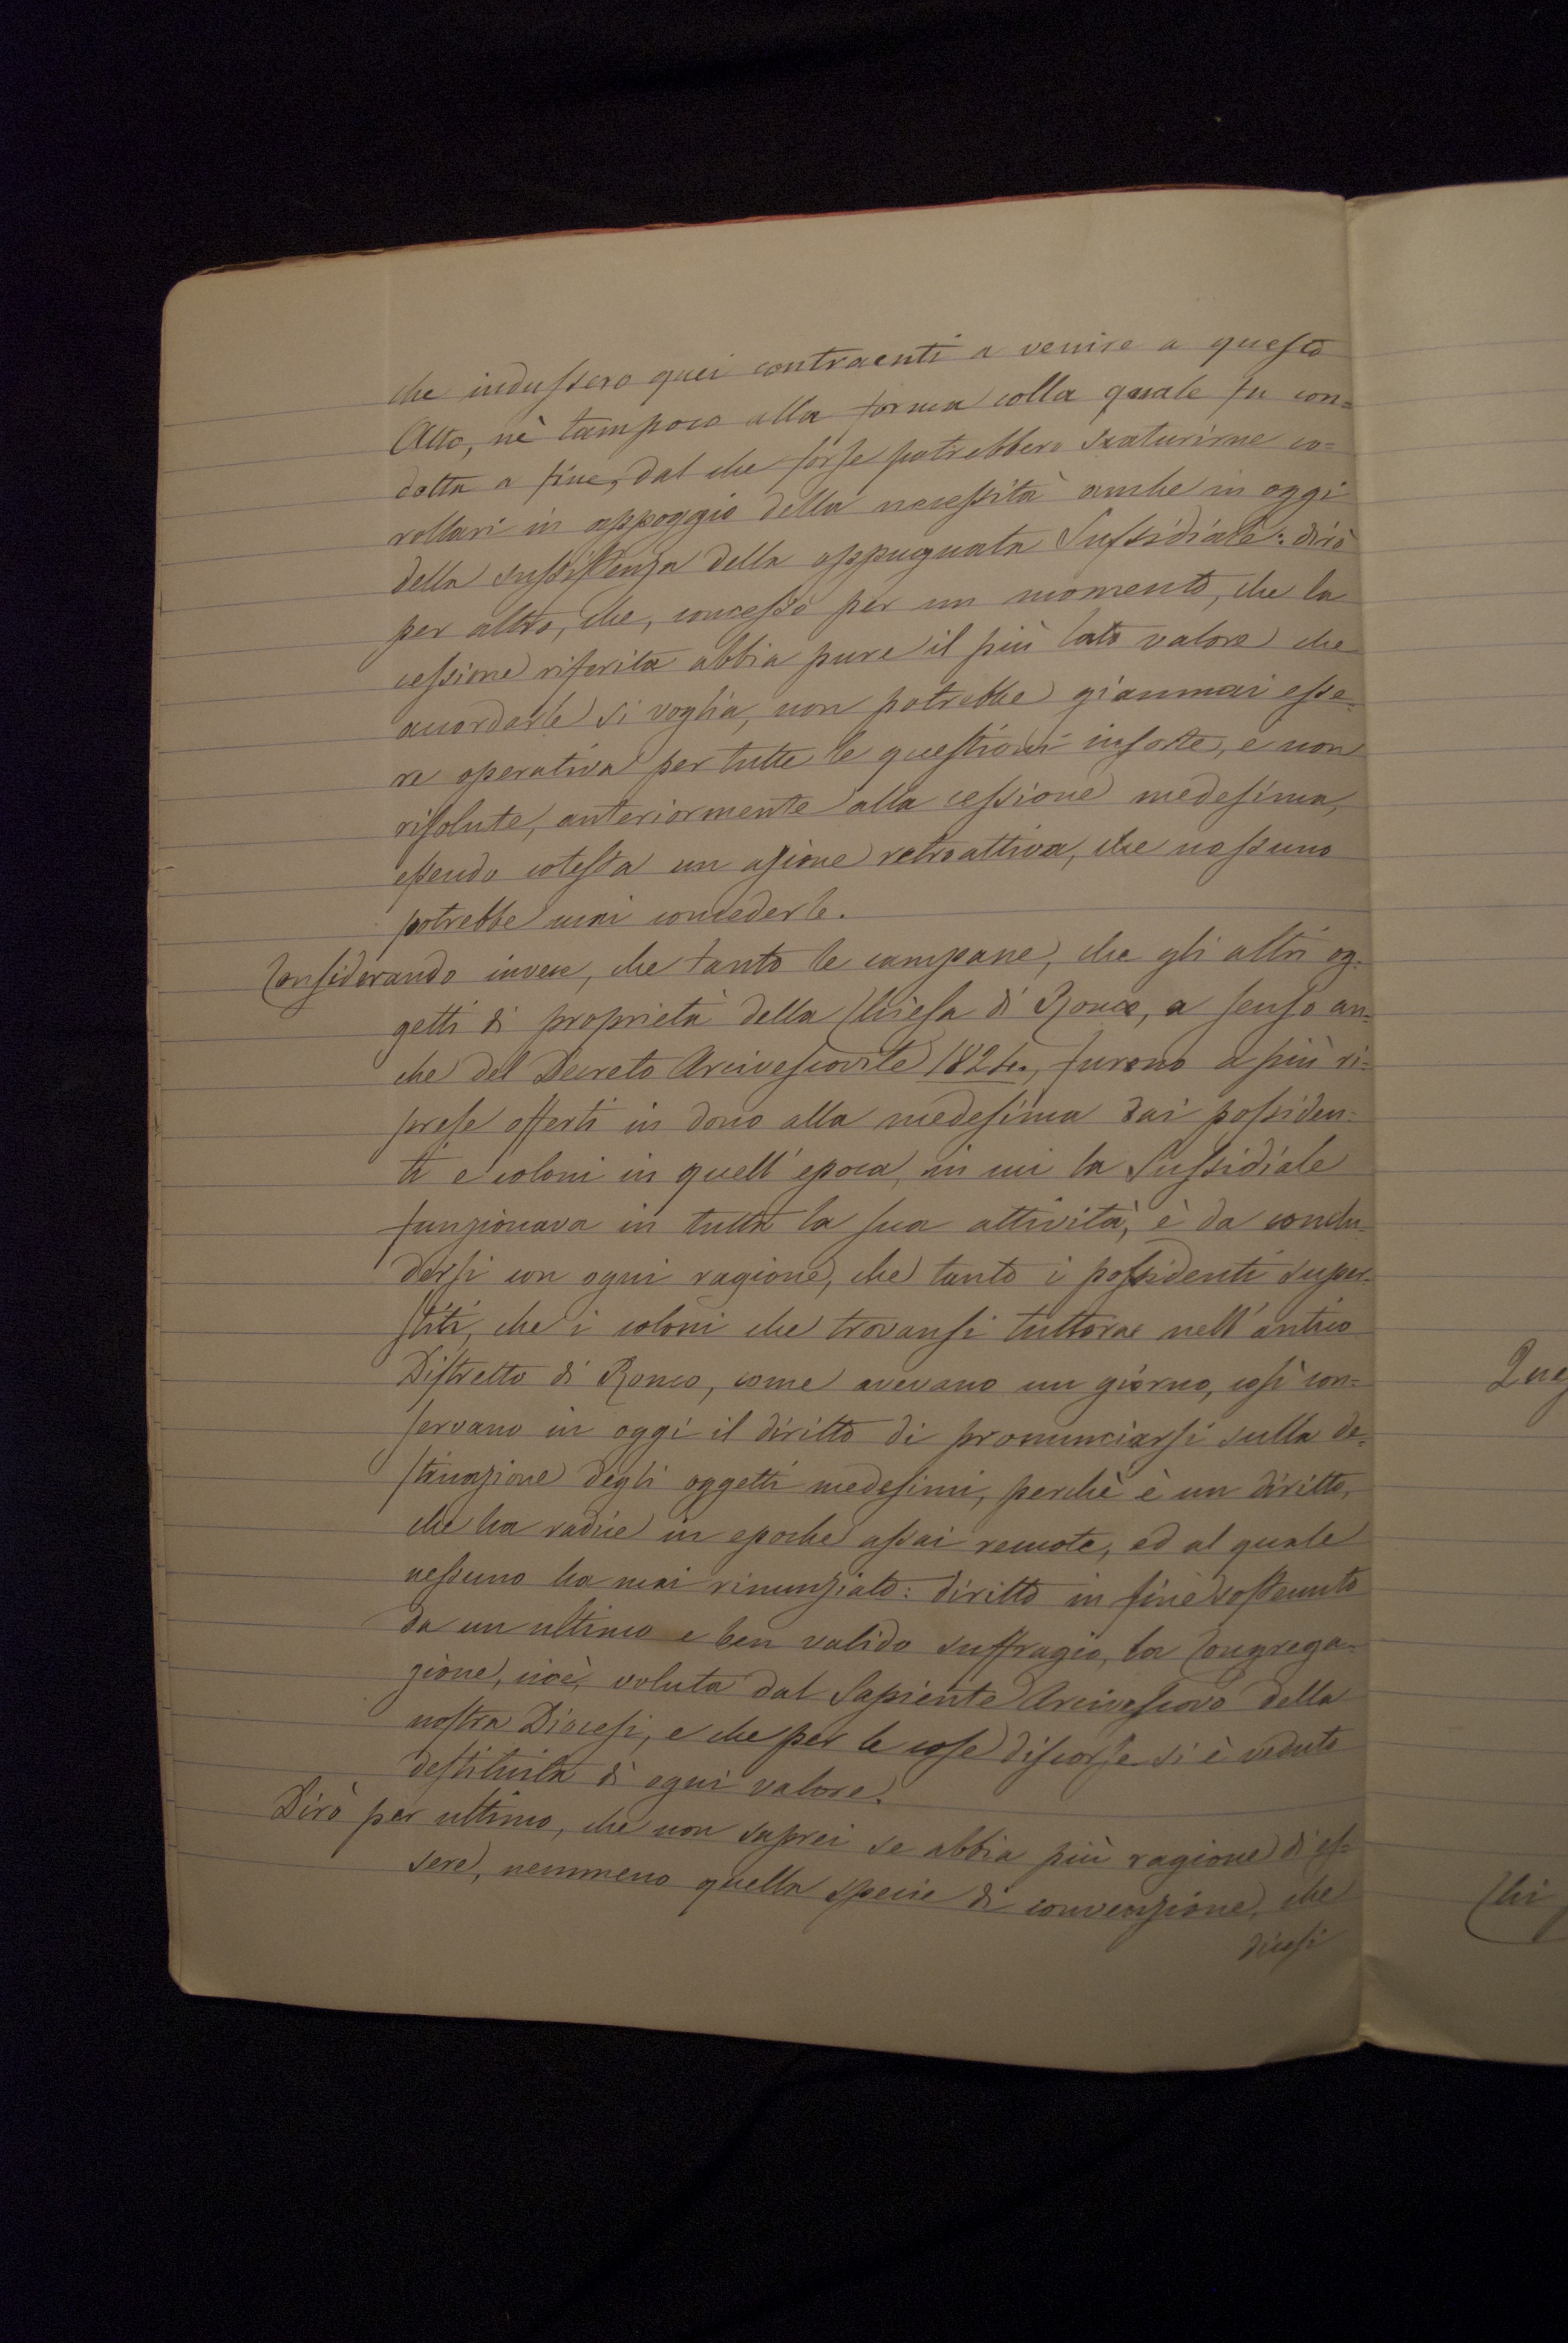 che indussero quei contraenti a venire a questo
Atto, nè tampoco alla forma colla quale fu con=
dotta a fine, dal che forse potrebbero scaturirne co=
rollari in appoggio della necessità anche in oggi
della sussistenza della oppugnata Sussidiale: dirò
per altro, che, concesso per un momento, che la
cessione riferita abbia pure il più lato valore che
accordarle si voglia, non potrebbe giammai esse=
re operativa per tutte le questioni insorte, e non
risolute, anteriormente alla cessione medesima,
essendo cotesta un azione retroattiva, che nessuno
potrebbe mai concederle.
Considerando invece, che tanto le campane, che gli altri og=
getti di proprietà della Chiesa di Ronco, a senso an=
che del Decreto Arcivescovile 1824., furono a più ri=
prese offerti in dono alla medesima dai possiden=
ti e coloni in quell'epoca, in cui la Sussidiale
funzionava in tutta la sua attività, è da conclu=
dersi con ogni ragione, che tanto i possidenti super=
stiti, che i coloni che trovansi tuttora nell'antico
Distretto di Ronco, come avevano un giorno, così con=
servano in oggi il diritto di pronunciarsi sulla de=
stinazione degli oggetti medesimi, perchè è un diritto,
che ha radice in epoche assai remote, ed al quale
nessuno ha mai rinunziato: diritto in fine sostenuto
da un ultimo e ben valido suffragio, la Congrega=
zione, cioè, voluta dal Sapiente Arcivescovo della
nostra Diocesi, e che per le cose discorse si è veduto
destituita di ogni valore.
Dirò per ultimo, che non saprei se abbia più ragione di es=
sere, nemmeno quella specie di convenzione, che
dicesi
Ques
Chi